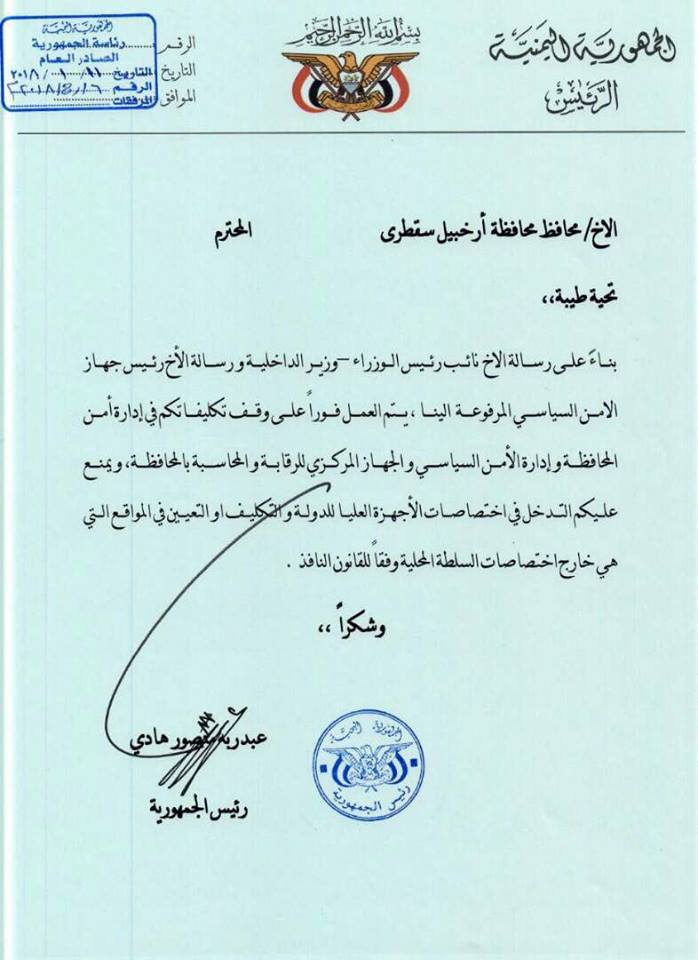 بسم الله الرحمن الرحيم
الجمهورية اليمنية
الرئيس
الرقم
التاريخ
الموافق
الجمهورية اليمنية
رئاسة الجمهورية
الصادر العام
التاريخ ١١/١٠/٢٠١٨
الرقم
المرفقات
الاخ/ محافظ محافظة أرخبيل سقطرى المحترم
تحية طيبة،،
بناءً على رسالة الاخ نائب رئيس الوزراء –وزير الداخلية و رسالة الأخ رئيس جهاز
الامن السياسي المرفوعة الينا ، يتم العمل فوراً على وقف تكليفاتكم في إدارة أمن
المحافظة و إدارة الأمن السياسي و الجهاز المركزي للرقابة و المحاسبة بالمحافظة، و يمنع
عليكم التدخل في اختصاصات الأجهزة العليا للدولة و التكليف او التعيين في المواقع التي
هي خارج اختصاصات السلطة المحلية وفقاً للقانون النافذ .
و شكراً ،،
عبدربه منصور هادي
رئيس الجمهورية
الجمهورية اليمنية
رئيس الجمهورية